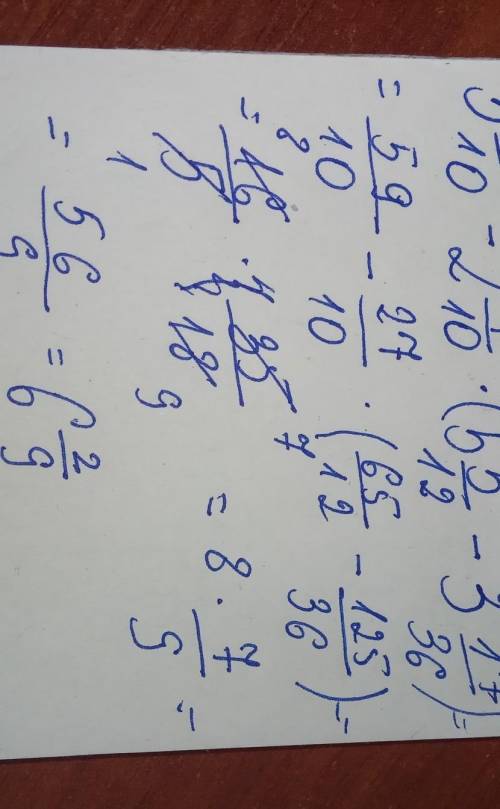 /10 - 2 /10 · (5 5/12 - 3 17/36) =
= 59/10 - 27/10 · (65/12 - 125/36) =
= 16/5 · 35/18 = 8 · 7/9 =
= 56/9 = 6 2/9